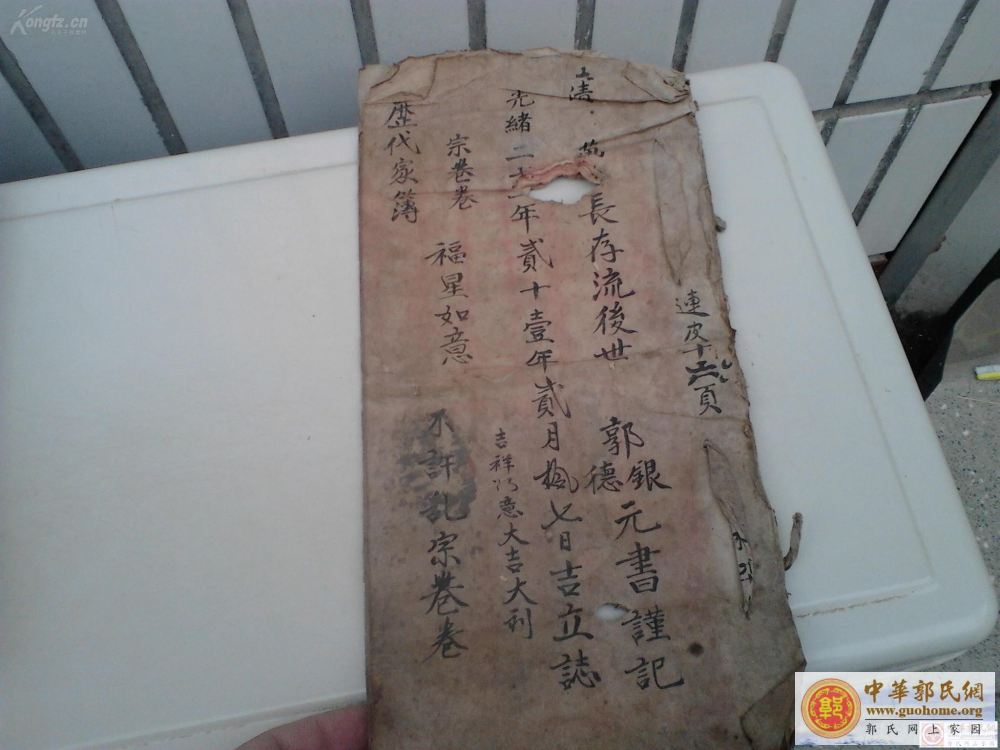 連皮十六頁
長存流後世 郭銀德元書謹記
光緒二十一年貳十壹年貳月拾七日吉立誌
吉祥如意大吉大利
宗卷卷
福星如意
不許乱宗卷卷
歷代家簿
Kongfz.cn
中華郭氏網
www.guohome.org
郭氏网上家园